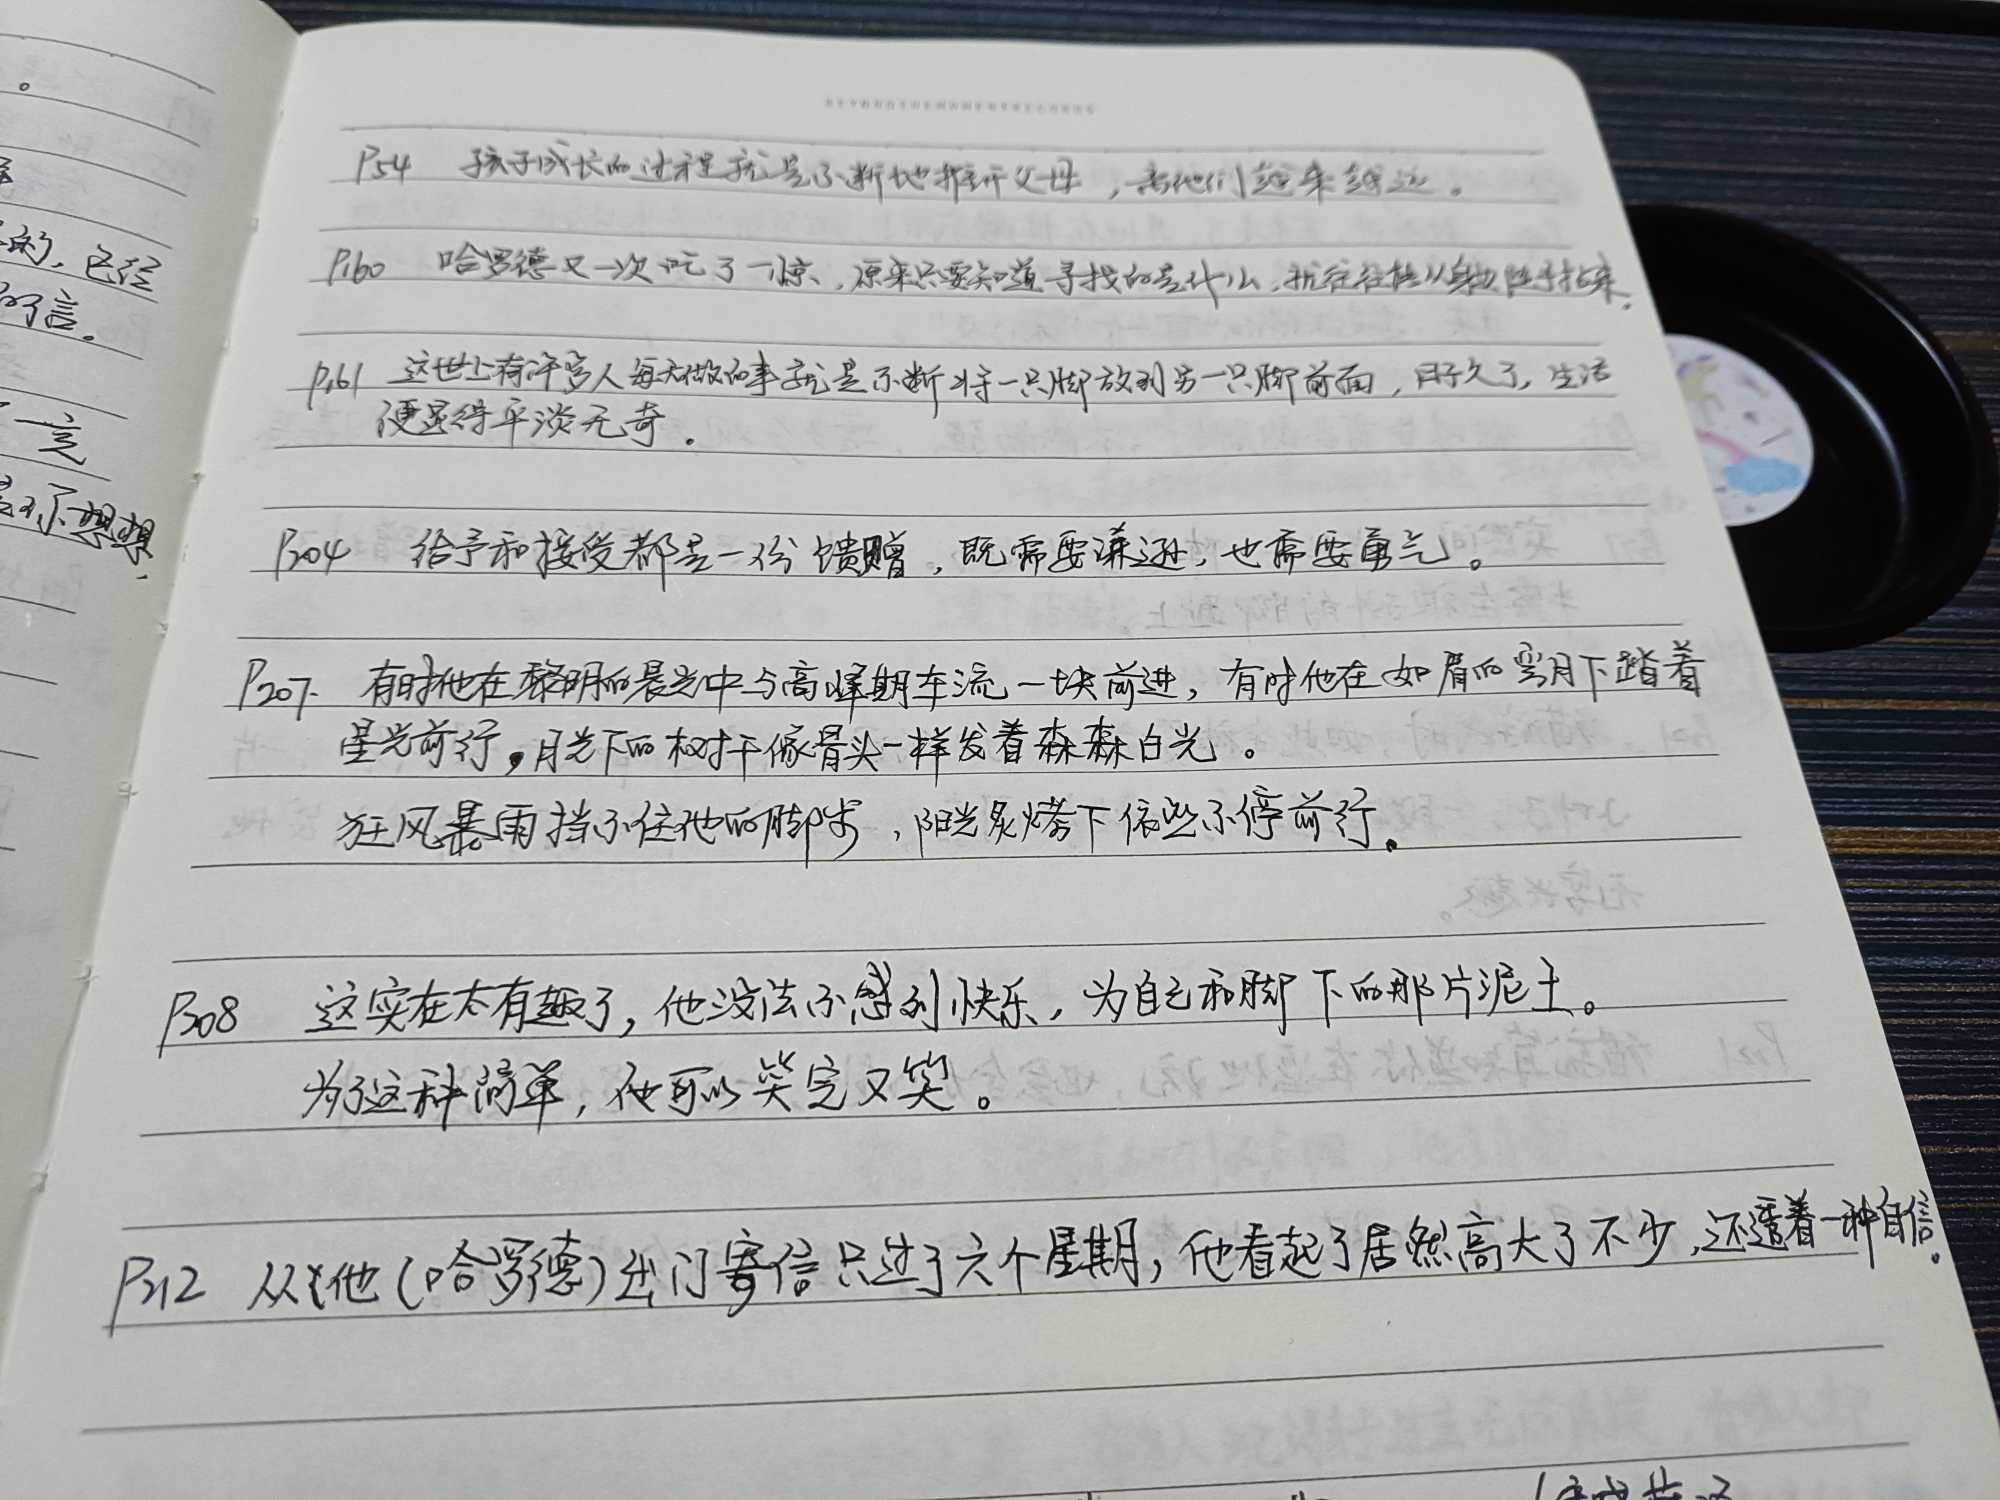 P54 孩子成长的过程就是不断地推开父母，离他们越来越远。
P160 哈罗德又一次吃了一惊，原来只要知道寻找的是什么，就往往能从身边随手拈来。
P161 这世上有许多人每天做的事就是不断将一只脚放到另一只脚前面，日子久了，生活
便显得平淡无奇。
P204 给予和接受都是一份馈赠，既需要谦逊，也需要勇气。
P207. 有时他在黎明的晨光中与高峰期车流一块前进，有时他在如眉的弯月下踏着
星光前行，月光下的树干像骨头一样发着森森白光。
狂风暴雨挡不住他的脚步，阳光炙烤下依然不停前行。
P208 这实在太有趣了，他没法不感到快乐，为自己和脚下的那片泥土。
为了这种简单，他可以笑完又笑。
P212 从他（哈罗德）出门寄信只过了六个星期，他看起了居然高大了不少，还透着一种自信。